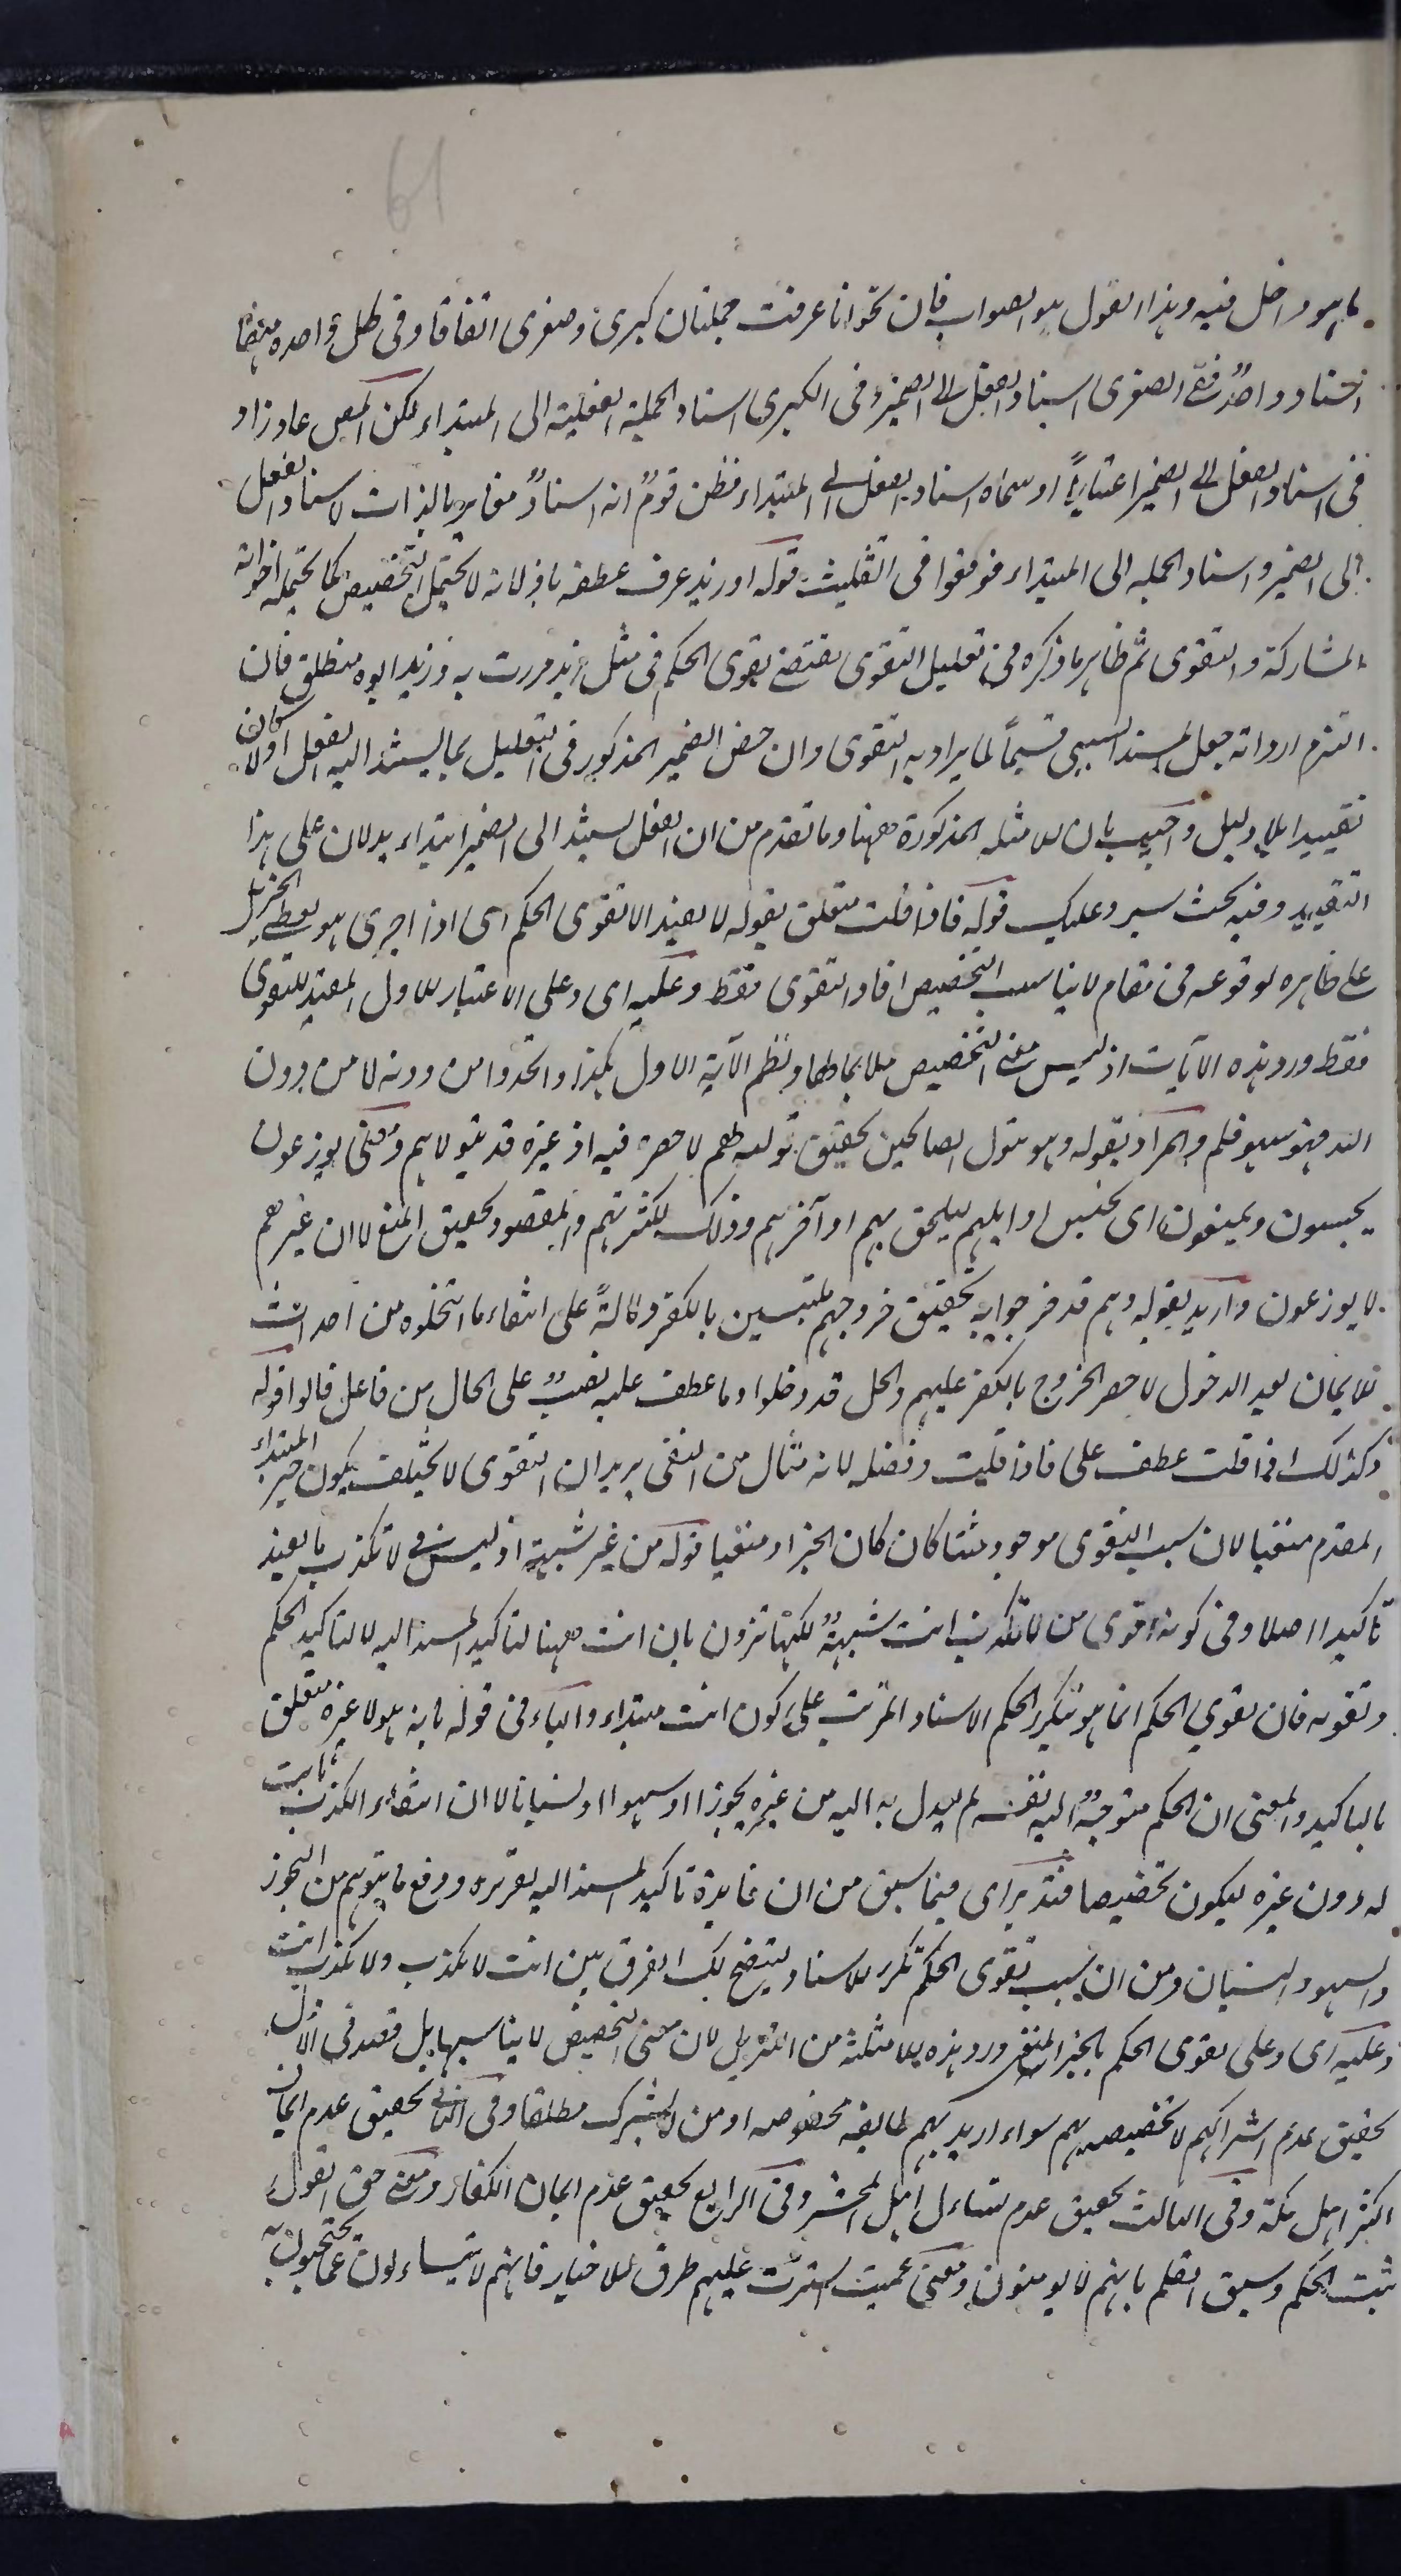 61
ما هو داخل فيه وهذا القول هو الصواب فان نحو انا عرفت جملتان كبرى وصغرى اتفاقا وفى كل واحده منهما
اسناد واحد ففى الصغرى اسناد الفعل الى الضمير وفى الكبرى اسناد الجملة الفعلية الى المبتداء لكن المص عاد زاد
فى اسناد الفعل الى الضمير اعتباريا او سماه اسناد الفعل الى المبتداء فظن قوم انه اسناد مغاير بالذات لاسناد الفعل
الى الضمير واسناد الجمله الى المبتداء فوقعوا فى التثليث قوله او زيد عرف عطفه باو لانه لا يحتمل التخصيص كما يحتمله اخواته
المشاركة والتقوى ثم ظاهر ما ذكره فى تعليل التقوى يقتضى تقوى الحكم فى مثل زيد مررت به وزيد ابوه منطلق فان
التزم ارد انه جعل المسند السببى قسيماً لما يراد به التقوى وان خص الضمير المذكور فى التعليل بما يسند اليه الفعل اولا كان
تقييدا بلا دليل واجيب بان الامثله المذكورة ههنا وما تقدم من ان الفعل يسند الى الضمير ابتداء يدلان على هذا
التقييد وفيه بحث سيرد عليك قوله فاذا قلت متعلق بقوله لا يفيد الا تقوى الحكم اى اذا اجرى هو يعطى الجزيل
على ظاهره لوقوعه فى مقام لا يناسب التخصيص افاد التقوى فقط وعليه اى وعلى الاعتبار الاول المفيد للتقوى
فقط ورد هذه الآيات اذ ليس معنى التخصيص ملايما لها ونظم الآية الاول هكذا واتخذوا من دونه لا من دون
الله فهو سهو قلم والمراد بقوله وهو يتولى الصالحين تحقيق توليه لهم لا حصره فيه اذ غيره قد يتولاهم ومعنى يوزعون
يحبسون ويمنعون اى يحبس اوايلهم ليلحق بهم اواخرهم وذلك لكثرتهم والمقصود تحقيق المنع لا ان غيرهم
لا يوزعون واريد بقوله وهم قد خرجوا به تحقيق خروجهم ملتبسين بالكفر دلالةً على انتفاء ما انتحلوه من احداث
الايمان بعد الدخول لا حصر الخروج بالكفر عليهم والحل قد دخلوا وما عطف عليه نصب على الحال من فاعل قالوا قوله
وكذلك اذا قلت عطف على فاذا قلت وفصله لانه مثال من النفى يريد ان التقوى لا يختلف بكون خبر المبتداء
المقدم منفيا لان سبب التقوى موجود مثبتا كان كان الخبر او منفيا قوله من غير شبهة اذ ليس فى لا تكذب ما يفيد
تأكيدا اصلا وفى كونه اقوى من لا تكذب انت شبهة لكنها تزول بان انت ههنا لتاكيد المسند اليه لا لتاكيد الحكم
وتقويه فان تقوي الحكم انما هو بتكرير الحكم الاسناد المترتب على كون انت مبتداء والباء فى قوله بانه هو لا غيره متعلق
بالتاكيد والمعنى ان الحكم متوجه اليه نفسه لم يعدل به اليه من غيره تجوزا او سهوا او نسيانا لا ان انتفاء الكذب ثابت
له دون غيره ليكون تخصيصا فتدبر اى فيما سبق من ان فايدة تاكيد المسند اليه تقريره ودفع ما يتوهم من التجوز
والسهو والنسيان ومن ان سبب تقوى الحكم تكرر الاسناد ليتضح لك الفرق بين انت لا تكذب ولا تكذب انت
وعليه اى وعلى تقوى الحكم بالخبر المنفى ورد هذه الامثلة من التنزيل لان معنى التخصيص لا يناسبها بل قصد فى الاول
تحقيق عدم اشراكهم لا تخصيصه بهم سواء اريد بهم طايفه مخصوصه او من لا يشرك مطلقا وفى الثانى تحقيق عدم ايمان
اكثر اهل مكة وفى الثالث تحقيق عدم تساءل اهل المحشر وفى الرابع تحقيق عدم ايمان الكفار ومعنى حق القول
ثبت الحكم وسبق القلم بانهم لا يومنون ومعنى عميت استترت عليهم طرق الاخبار فانهم لا يتساءلون عما يحتجون به